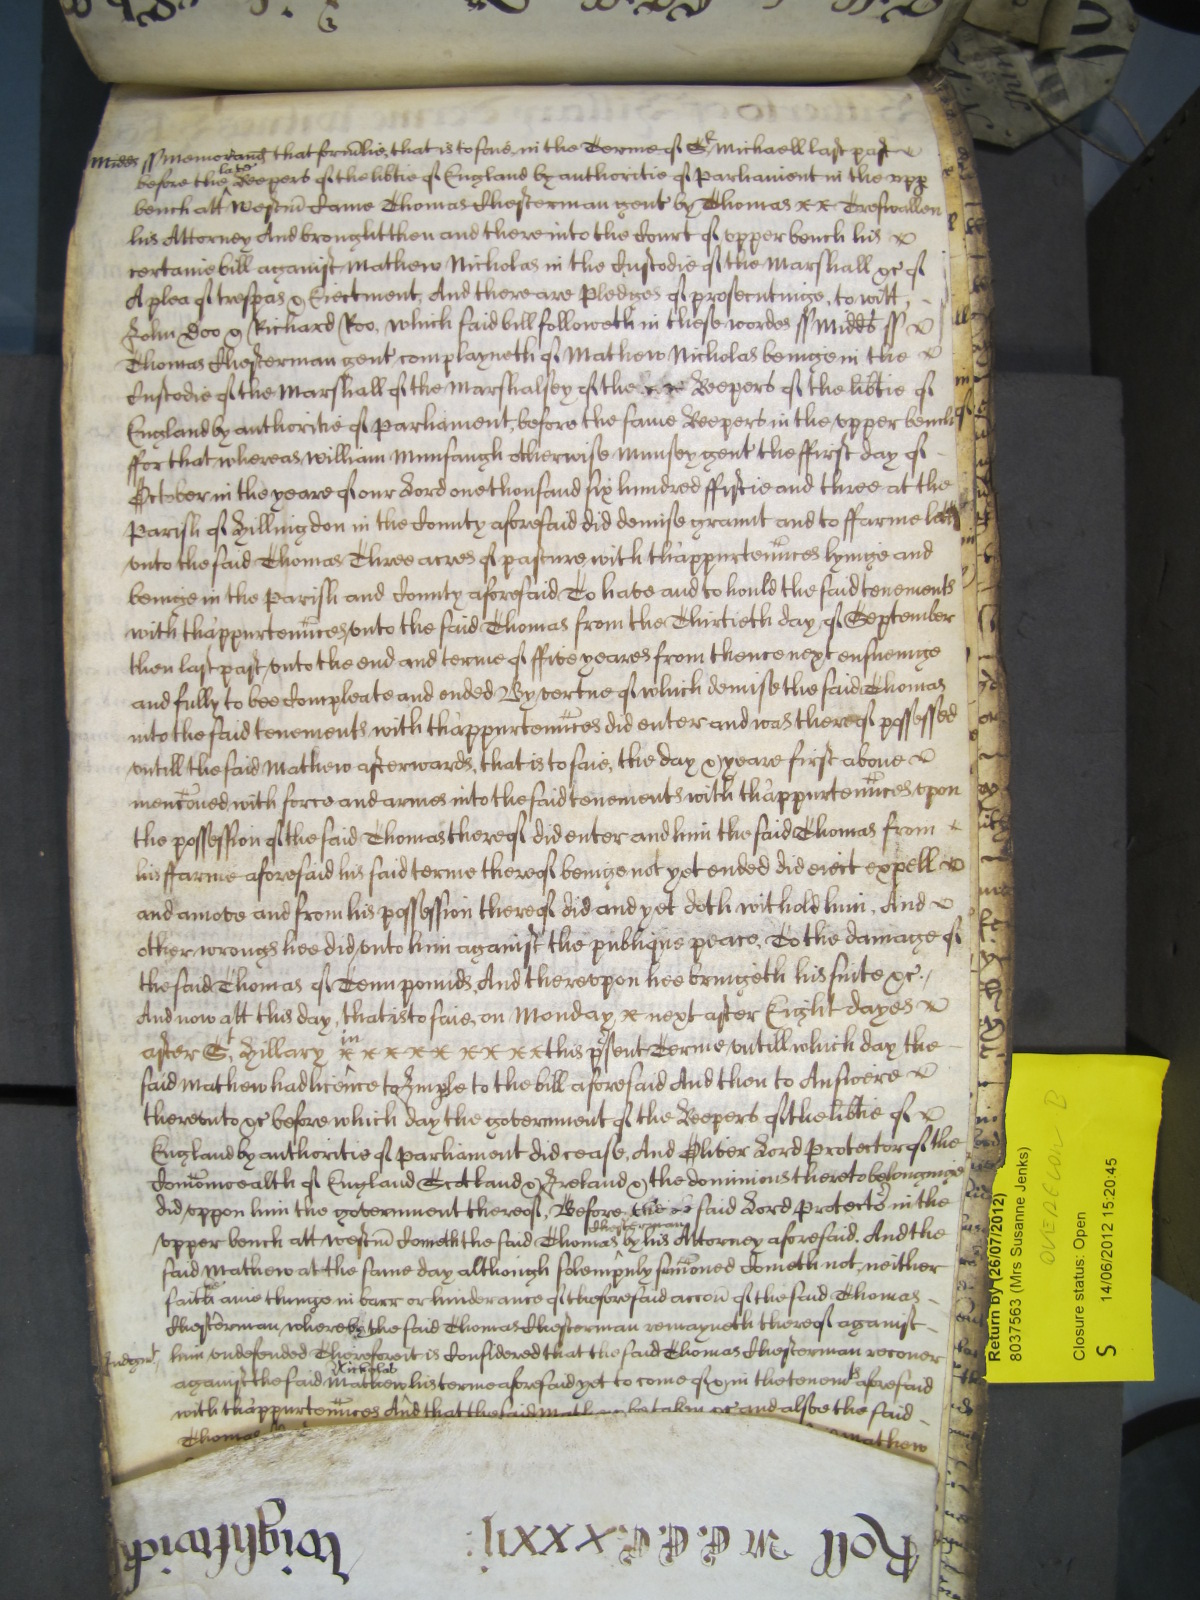 Midds ss Memorand that formlie, that is to saie, in the Terme of St Michaell last past
before the late Keepers of the libtie of England by authoritie of Parliament in the upp
bench att Westm Came Thomas Chesterman gent by Thomas x x Treswallen
his Attorney And brought then and there into the Court of upper bench his
certaine bill against Mathew Nicholas in the Custodie of the Marshall &c of
A plea of trespas & Eiectment, And there are Pledges of prosecutinge, to witt,
John Doo & Richard Roo, which said bill followeth in these wordes ss Midds ss
Thomas Chesterman gent complayneth of Mathew Nicholas beinge in the
Custodie of the Marshall of the Marshalsey of the Keepers of the libtie of
England by authoritie of Parliament, before the same Keepers in the upper bench
ffor that whereas William Munsaugh otherwise Munsey gent the ffirst day of
October in the yeare of our Lord one thousand six hundred ffiftie and three at the
Parish of Hillingdon in the County aforesaid did demise graunt and to ffarme lett
unto the said Thomas Three acres of pasture with thappurtennces lyinge and
beinge in the Parish and County aforesaid To have and to hould the said tenements
with thappurtennces unto the said Thomas from the Thirtieth day of September
then last past unto the end and terme of ffive yeares from thence next ensueinge
and fully to bee Compleate and ended By vertue of which demise the said Thomas
into the said tenements with thappurtennces did enter and was thereof possessed
untill the said Mathew afterwards, that is to saie, the day & yeare first above
menconed, with force and armes into the said tenements with thappurtennces upon
the possession of the said Thomas thereof did enter and him the said Thomas from
his ffarme aforesaid his said terme thereof beinge not yet ended did eiect expell
and amove and from his possession thereof did and yet doth withold him, And
other wrongs hee did unto him against the publique peace, To the damage of
the said Thomas of Tenn pounds, And thereupon hee bringeth his suite &c.
And now att this day, that is to saie, on Monday x next after Eight dayes
after St Hillary in x x x x x x x x x this psent Terme, untill which day the
said Mathew had licence to Imple to the bill aforesaid And then to Answere
thereunto &c before which day the goverment of the Keepers of the libtie of
England by authoritie of Parliament did cease, And Oliver Lord Protector of the
Comonwealth of England Scotland & Ireland & the dominions thereto belonginge
did uppon him the goverment thereof, Before the said Lord Protector in the
upper bench att Westm Cometh the said Thomas Chesterman by his Attorney aforesaid. And the
said Mathew at the same day although solempnly sumoned Cometh not, neither
saith anie thinge in barr or hinderance of theforesaid accon of the said Thomas
Chesterman, whereby the said Thomas Chesterman remayneth thereof against
Judgmt him undefended Therefore it is Considered that the said Thomas Chesterman recover
against the said Mathew Nicholas his terme aforesaid yet to come of & in the tenemts aforesaid
with thappurtennces And that the said Mathew be taken &c and alsoe the said
Thomas Mathew
Roll MCCCCxxxij:
Wightwick
Return by (26/07/2012)
8037563 (Mrs Susanne Jenks)
Closure status: Open
S 14/06/2012 15:20:45